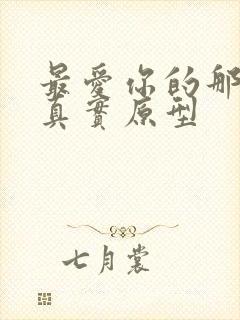 最愛你的那
真實原型
七月裳